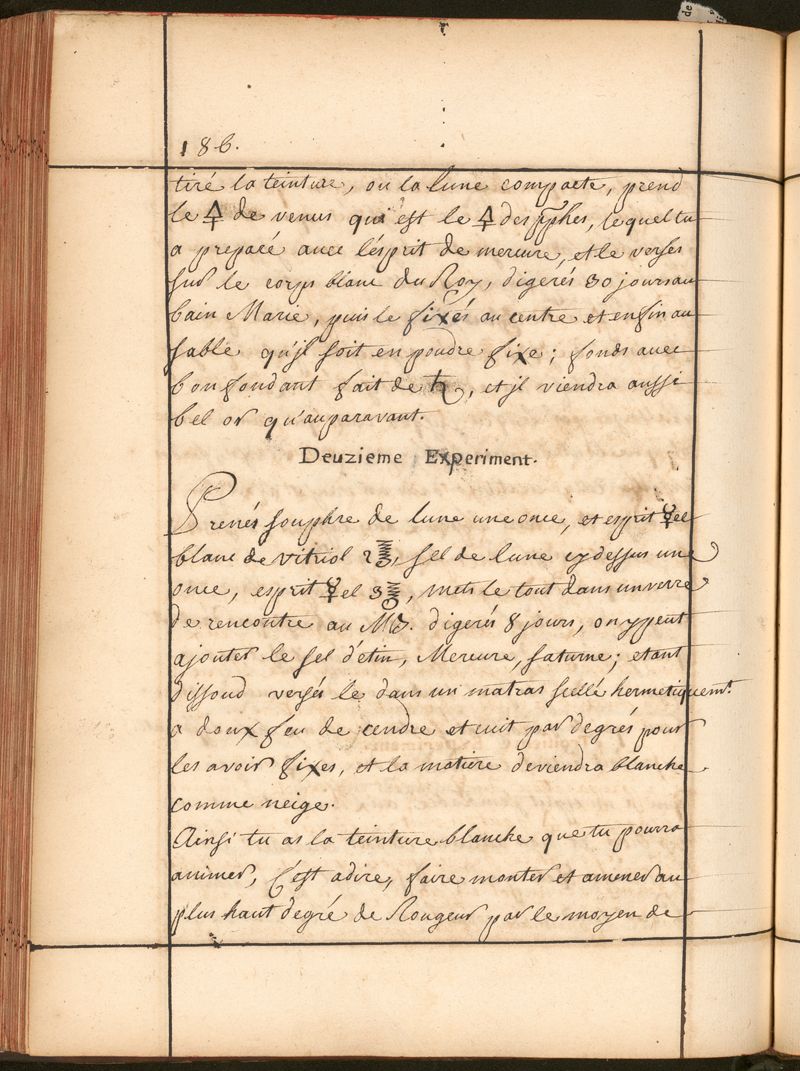 186.
tiré la teinture, ou la lune compacte, prend
le 🜍 de venus qui est le 🜍 des pphes, lequel tu
a preparé avec l'esprit de mercure, et le verses
sur le corps blanc du Roy, digerés 30 jours au
bain Marie, puis le fixés au centre et enfin au
sable qu'jl soit en poudre fixe; fonds avec
bon fondant fait de ♄, et jl viendra aussi
bel or qu'auparavant.
Deuzieme Experiment.
Prenés souphre de lune une once, et esprit ☿el
blanc de vitriol 2℥, sel de lune cy dessus une
once, esprit ☿el 3℥, mets le tout dans un verre
de rencontre au MB. digerés 8 jours, on y peut
ajouter le sel d'étin, Mercure, saturne; etant
dissoud versés le dans un matras scellé hermetiquemt.
a doux feu de cendre et cuit par degrés pour
les avoir fixes, et la matiere deviendra blanche
comme neige.
Ainsi tu as la teinture blanche que tu pourra
animer, C'est adire, faire monter et amener au
plus haut degré de Rougeur par le moyen de